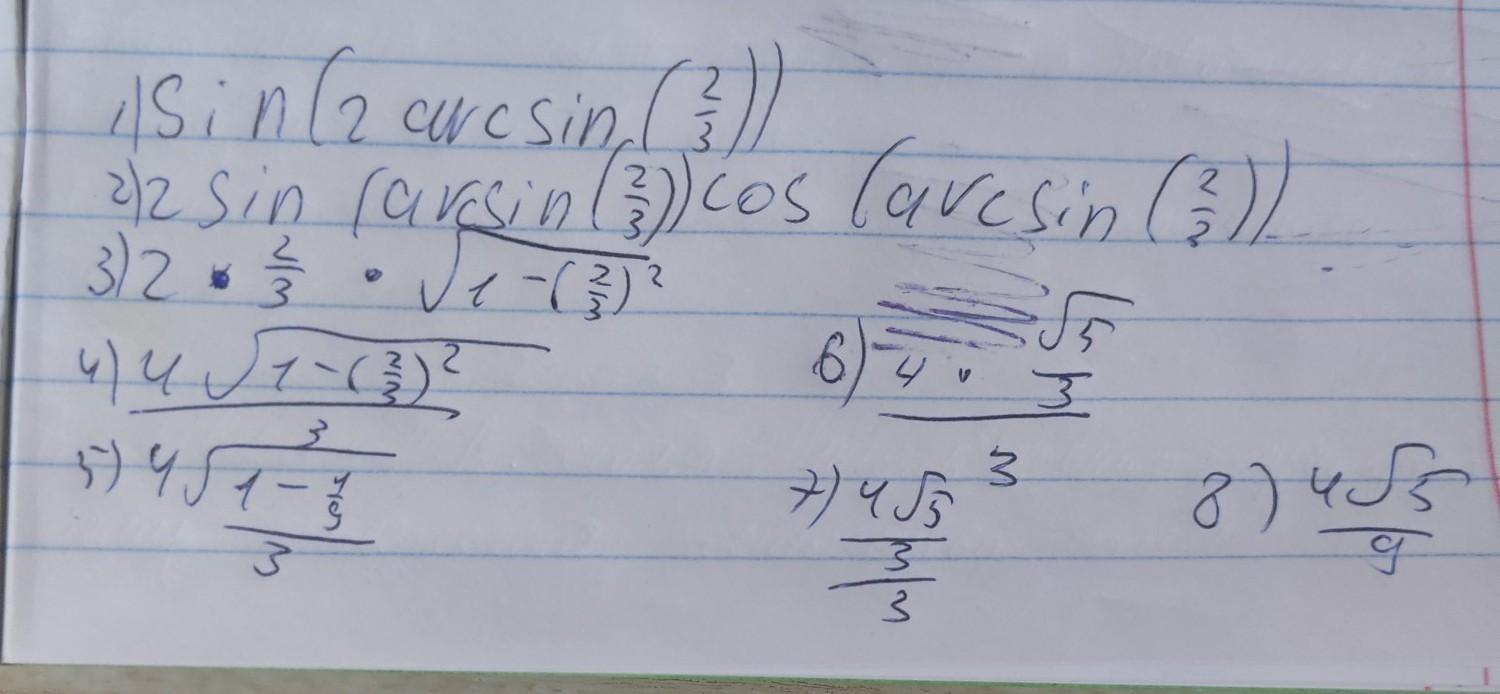 1) Sin(2 arcsin(2/3))
2) 2 sin (arcsin(2/3)) cos (arcsin(2/3))
3) 2 • 2/3 • √(1-(2/3)²)
4) (4 √(1-(2/3)²))/3
5) (4√(1-4/9))/3
6) (4 · √5/3)/3
7) (4√5/3)/3
8) 4√5/9